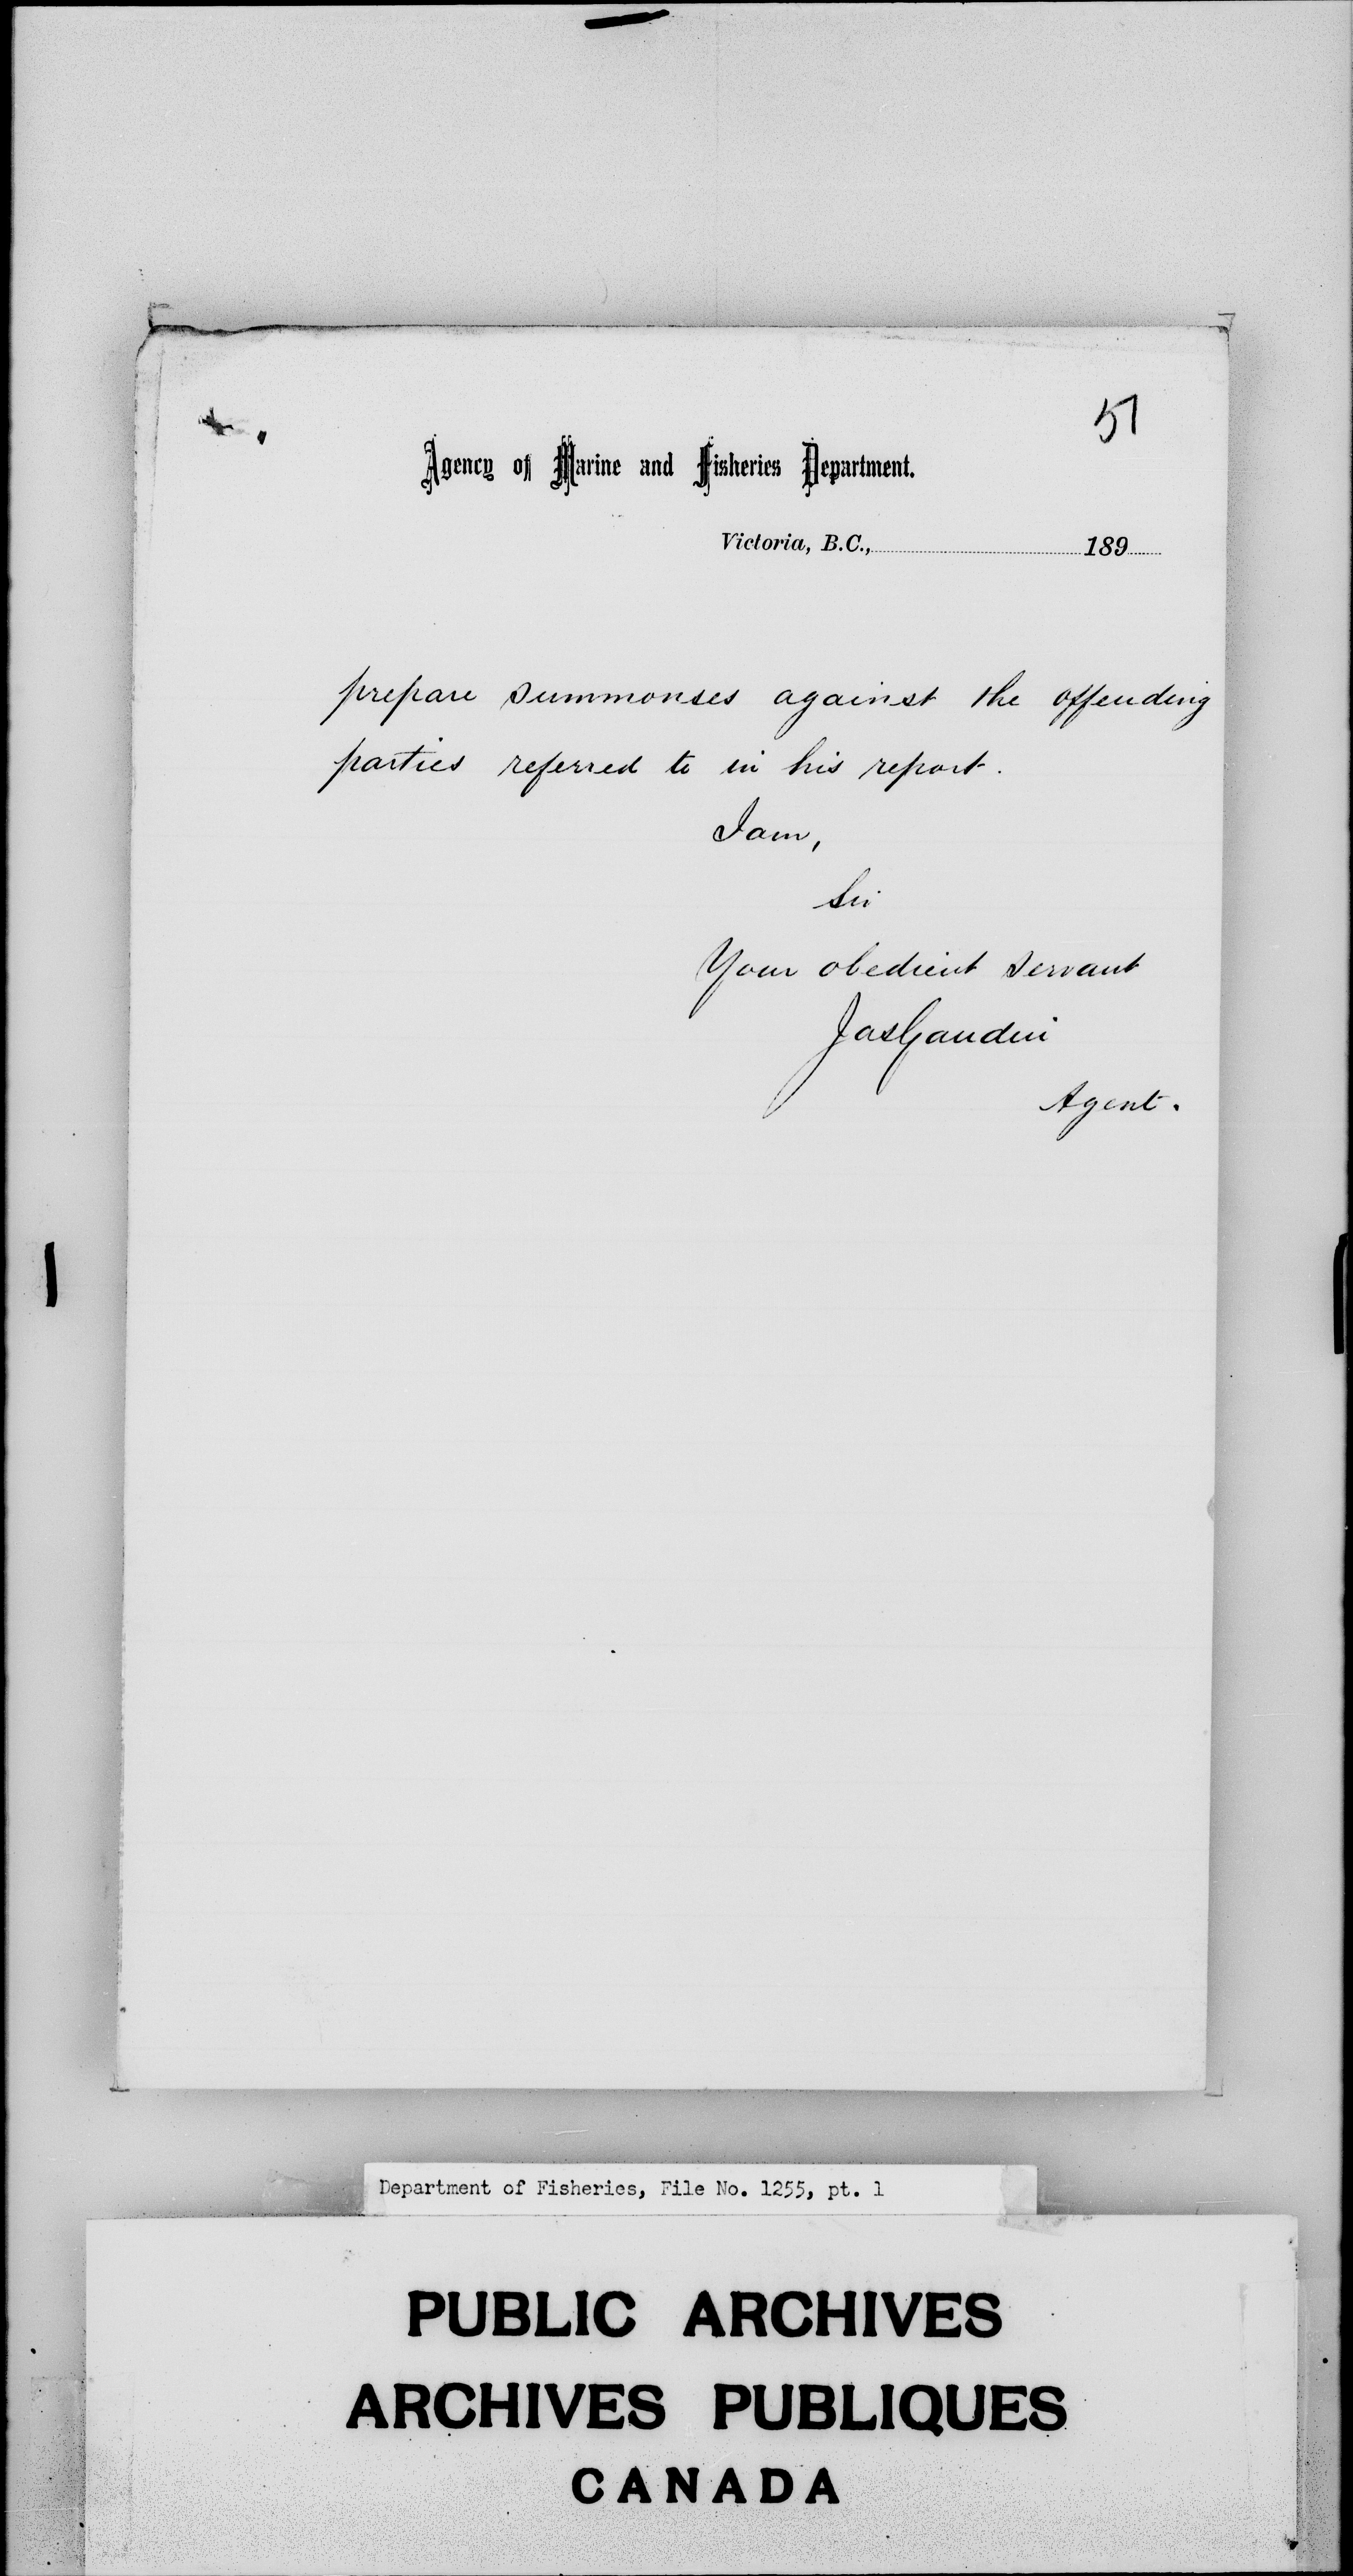 51
Agency of Marine and Fisheries Department.
Victoria, B.C., 189
prepare summonses against the offending
parties referred to in his report.
I am,
Sir
Your obedient servant
Jas Gaudin
Agent.
Department of Fisheries, File No. 1255, pt. 1
PUBLIC ARCHIVES
ARCHIVES PUBLIQUES
CANADA